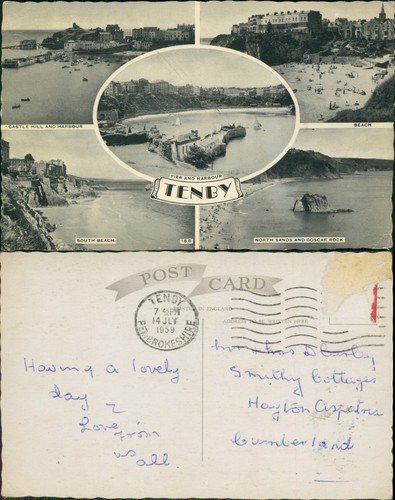 CASTLE HILL AND HARBOUR
BEACH
PIER AND HARBOUR
TENBY
SOUTH BEACH
NORTH SANDS AND GOSCAR ROCK
POST CARD
TENBY
14 JLY
1959
PEMBROKESHIRE
Having a lovely
day
Love from
us
all.
Smithy Cottages
Hayton Aspatria
Cumberland